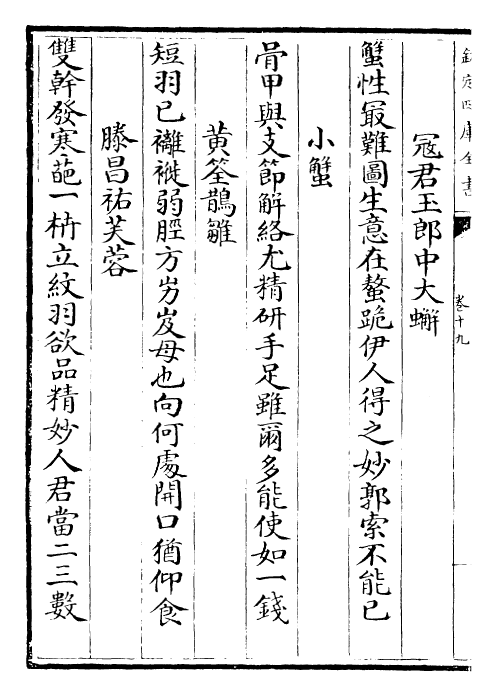 欽定四庫全書
卷十九
冦君玉郎中大蠏
蟹性最難圖生意在螯跪伊人得之妙郭索不能已
小蟹
骨甲與支節解絡尤精研手足雖爾多能使如一錢
黄筌鵲雛
短羽已褵褷弱脛方岃岌母也向何處開口猶仰食
滕昌祐芙蓉
雙幹發寒葩一枿立紋羽欲品精妙人君當二三數